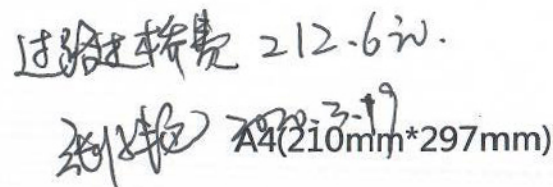 过路过桥费 212.6元.
2020.3.19
A4(210mm*297mm)